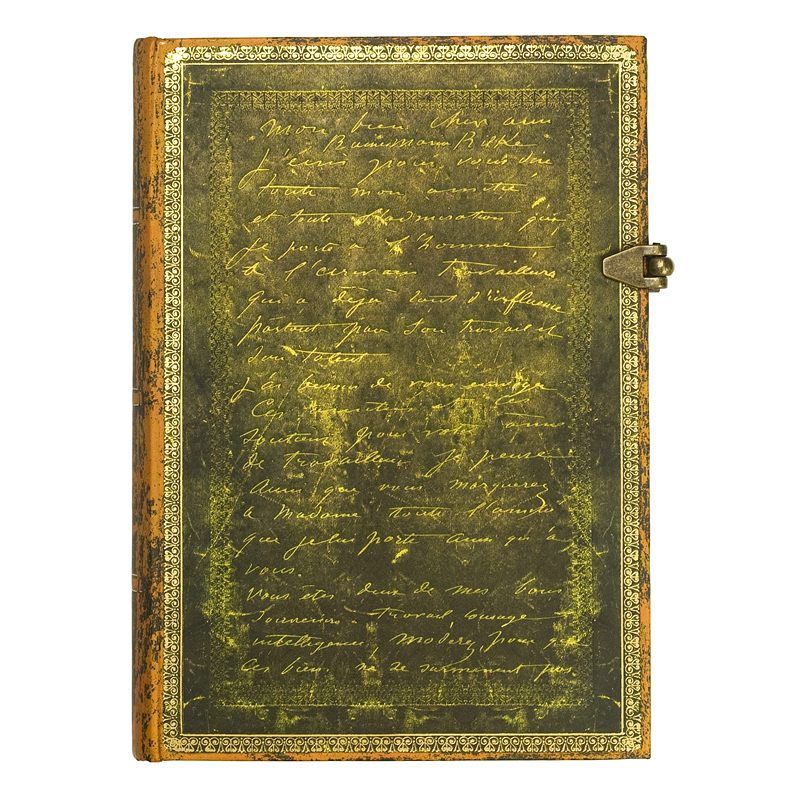 Mon bien cher ami
Rainer Maria Rilke
J'écris pour vous dire
toute mon amitié
et toute l'admiration que
je porte à l'homme
à l'écrivain travailleurs
qui a déjà tant d'influence
partout par son travail et
son talent
J'ai besoin de vous
Ces
soutien pour
de travailleur Je pense
Aussi que vous
à Madame toute l'amitié
que je lui porte Ainsi qu'à
vous.
Vous êtes deux de mes bons
souvenirs travail courage
intelligence, modérez pour que
ces bien ne se surmenent pas